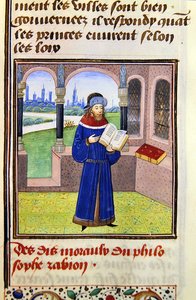 ment les villes sont bien
gouvernees il respondy quāt
les princes vivent selon
les loix
Des dis moraulx du philo
sophe zabion